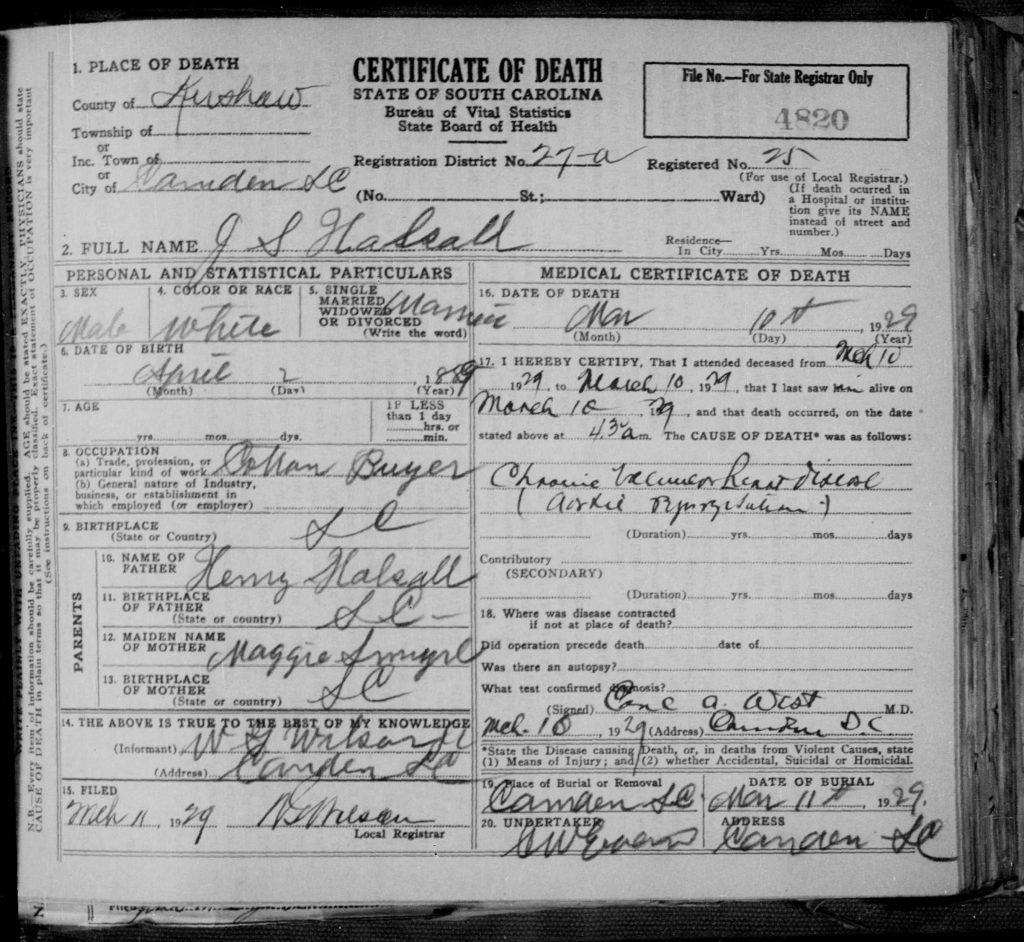 1. PLACE OF DEATH
County of Kershaw
Township of
or
Inc. Town of
or
City of Camden SC
CERTIFICATE OF DEATH
STATE OF SOUTH CAROLINA
Bureau of Vital Statistics
State Board of Health
File No.—For State Registrar Only
4820
Registration District No. 27-a
Registered No. 25
(For use of Local Registrar.)
(No. St.; Ward)
(If death ocurred in
a Hospital or institu-
tion give its NAME
instead of street and
number.)
2. FULL NAME J S Halsall
Residence—
In City Yrs. Mos. Days
PERSONAL AND STATISTICAL PARTICULARS
3. SEX
Male
4. COLOR OR RACE
White
5. SINGLE
MARRIED
WIDOWED
OR DIVORCED
(Write the word)
Married
6. DATE OF BIRTH
April 2 1889
(Month) (Day) (Year)
7. AGE
yrs. mos. dys.
IF LESS
than 1 day
hrs. or
min.
8. OCCUPATION
(a) Trade, profession, or
particular kind of work Cotton Buyer
(b) General nature of Industry,
business, or establishment in
which employed (or employer)
9. BIRTHPLACE
(State or Country) S C
PARENTS
10. NAME OF
FATHER Henry Halsall
11. BIRTHPLACE
OF FATHER
(State or country) S C
12. MAIDEN NAME
OF MOTHER Maggie Smyrl
13. BIRTHPLACE
OF MOTHER
(State or country) S C
14. THE ABOVE IS TRUE TO THE BEST OF MY KNOWLEDGE
(Informant) Wilson
(Address) Camden SC
15. FILED
Mch 11 1929 Wilson
Local Registrar
MEDICAL CERTIFICATE OF DEATH
16. DATE OF DEATH
Mar 10th, 1929
(Month) (Day) (Year)
17. I HEREBY CERTIFY, That I attended deceased from Mch 10
1929, to March 10, 1929, that I last saw him alive on
March 10, 1929, and that death occurred, on the date
stated above at 4.30 a m. The CAUSE OF DEATH* was as follows:
Chronic Valvular heart disease
(Aortic Regurgitation)
(Duration) yrs. mos. days
Contributory
(SECONDARY)
(Duration) yrs. mos. days
18. Where was disease contracted
if not at place of death?
Did operation precede death date of
Was there an autopsy?
What test confirmed diagnosis?
(Signed) A. West M.D.
Mch. 10, 1929 (Address) Camden S.C.
*State the Disease causing Death, or, in deaths from Violent Causes, state
(1) Means of Injury; and (2) whether Accidental, Suicidal or Homicidal.
19. Place of Burial or Removal
Camden S.C.
DATE OF BURIAL
Mar 11th, 1929.
20. UNDERTAKER
ADDRESS
Camden SC
N.B.—Every item of information should be carefully supplied. AGE should be stated EXACTLY. PHYSICIANS should state
CAUSE OF DEATH in plain terms so that it may be properly classified. Exact statement of OCCUPATION is very important
(See instructions on back of certificate.)